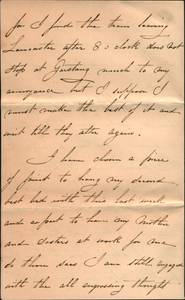 for I find the train leaving
Lancaster after 8 o'clock does not
stop at Garstang much to my
annoyance but I suppose I
must make the best of it and
wait till they alter again.
I have chosen a piece
of print to hang my second
best bed with this last week
and expect to have my Mother
and sisters at work for me
do them soon I am still engaged
with the all engrossing thought